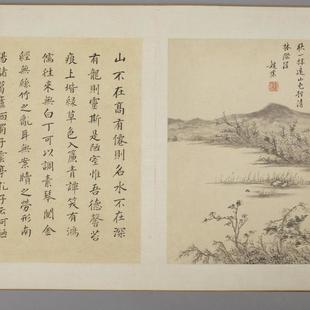 一抹遠山色
林
山不在高有僊則名水不在深
有龍則靈斯是陋室惟吾德馨苔
痕上堦綠草色入簾青譚笑有鴻
儒往來無白丁可以調素琴閱金
經無絲竹之亂耳無案牘之勞形南
陽諸葛廬西蜀子雲亭孔子云何陋